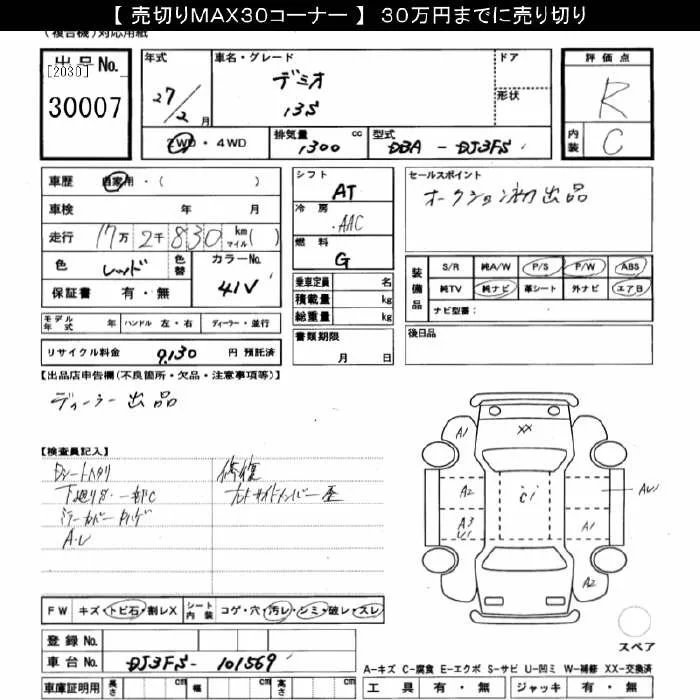 【 売切りMAX30コーナー 】 30万円までに売り切り
(複合機)対応用紙
出品No.
[2030]
30007
年式
27/2月
車名・グレード
デミオ
13S
ドア
形状
2WD・4WD
排気量 1300 cc
型式 DBA - DJ3FS
評価点
R
内装 C
車歴 自家用・( )
車検 年 月
走行 17万2千830 km マイル( )
色 レッド 色替
カラーNo. 41V
保証書 有・無
シフト AT
冷房 AAC
燃料 G
乗車定員 名
積載量 kg
総重量 kg
セールスポイント
オークション初出品
装備品
S/R 純A/W P/S P/W ABS
純TV 純ナビ 革シート 外ナビ エアB
ナビ型番:
モデル年式 年 ハンドル 左・右 ディーラー・並行
書類期限 月 日
後日品
リサイクル料金 9,130 円 預託済
【出品店申告欄(不良箇所・欠品・注意事項等)】
ディーラー出品
【検査員記入】
修復
A・U
A1
XX
A2
C1
A3
U1
AU
A1
A2
FW キズ・トビ石・割レX シート内装 コゲ・穴・汚レ・シミ・破レ・スレ
登録No.
車台No. DJ3FS-101569
スペア
A-キズ C-腐食 E-エクボ S-サビ U-凹ミ W-補修 XX-交換済
車庫証明用 長さ cm 幅 cm 高さ cm
工具 有・無 ジャッキ 有・無